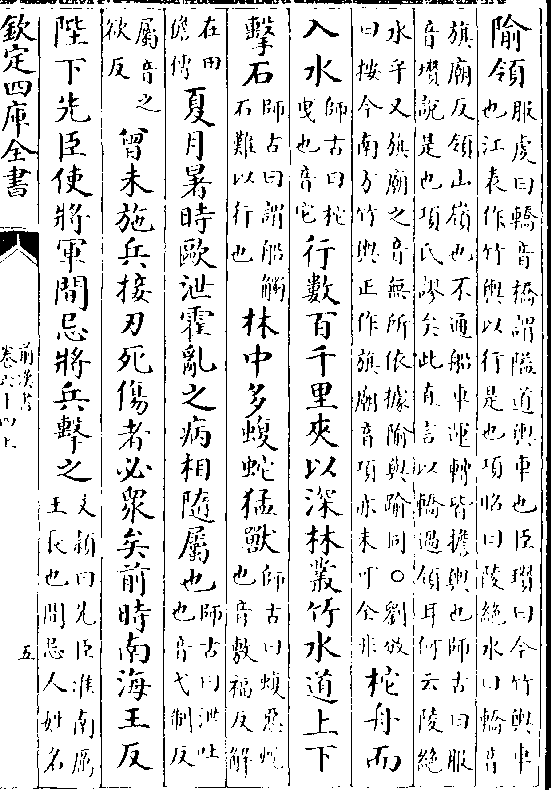 隃領服虔曰轎音橋謂隘道輿車也臣瓚曰今竹輿車也江表作竹輿以行是也項昭曰陵絶水曰轎音
旗廟反領山嶺也不通船車運轉皆擔輿也師古曰服音瓚說是也項氏謬矣此直言以轎過領耳何云陵絶
水乎又旗廟之音無所依據隃與踰同○劉攽曰按今南方竹輿正作旗廟音項亦未可全非拕舟而
入水師古曰拕曳也音它行數百千里夾以深林叢竹水道上下
擊石師古曰謂船觸石難以行也林中多蝮蛇猛獸師古曰蝮惡蛇也音敷福反解
在田儋傳夏月暑時歐泄霍亂之病相隨屬也師古曰泄吐也音弋制反
屬音之欲反曾未施兵接刃死傷者必衆矣前時南海王反
陛下先臣使將軍間忌將兵擊之文頴曰先臣淮南厲王長也間忌人姓名
欽定四庫全書
前漢書
卷六十四上
五